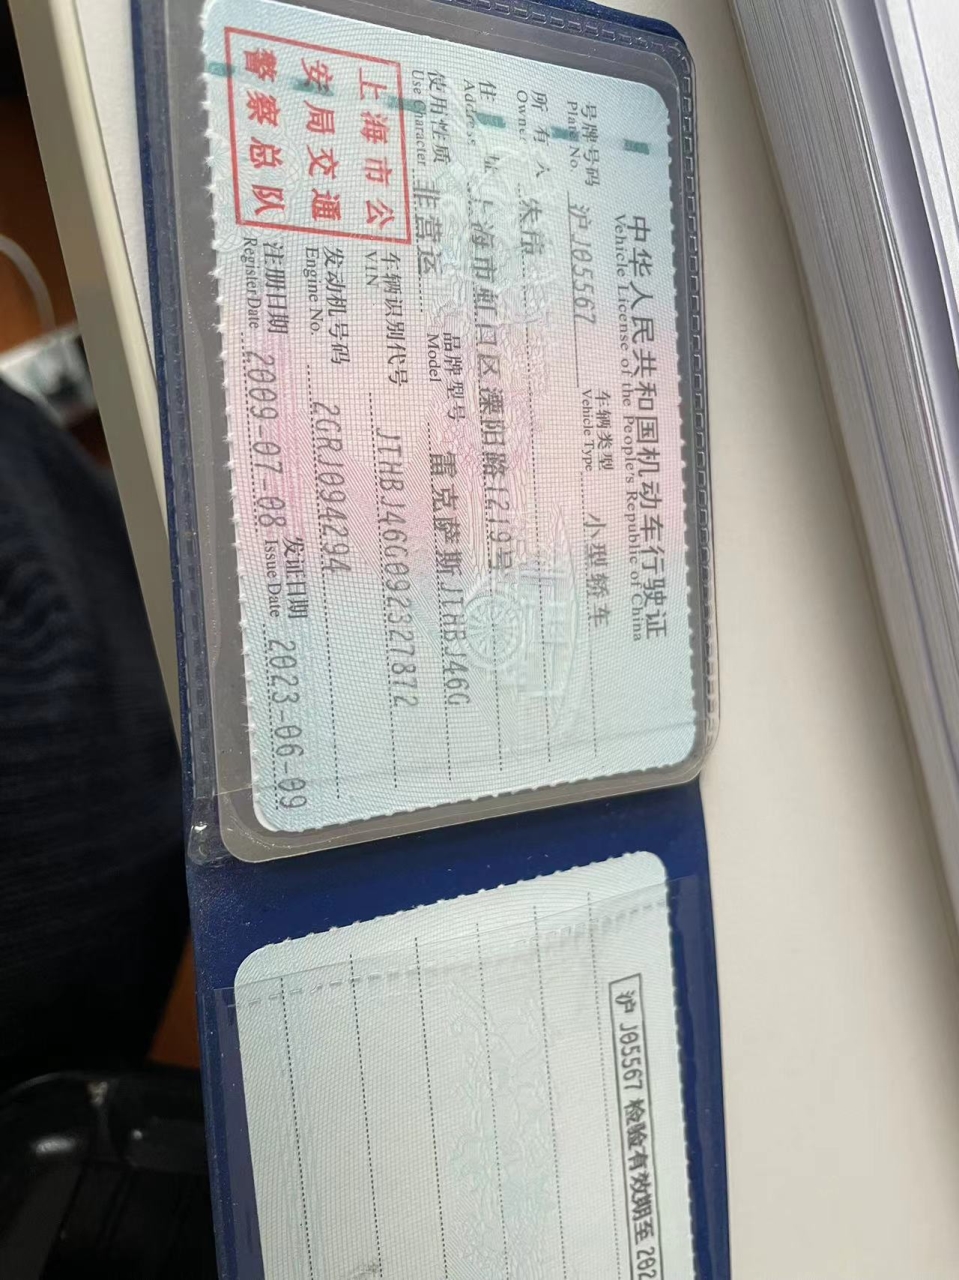 中华人民共和国机动车行驶证
Vehicle License of the People's Republic of China
号牌号码 沪J05567 车辆类型 小型轿车
Plate No. Vehicle Type
所有人 朱
Owner
住址 上海市虹口区溧阳路1219号
Address
使用性质 非营运 品牌型号 雷克萨斯JTHBJ46G
Use Character Model
上海市公
安局交通
警察总队
车辆识别代号 JTHBJ46G092327872
VIN
发动机号码 2GRJ094294
Engine No.
注册日期 2009-07-08 发证日期 2023-06-09
Register Date Issue Date
沪J05567 检验有效期至 202